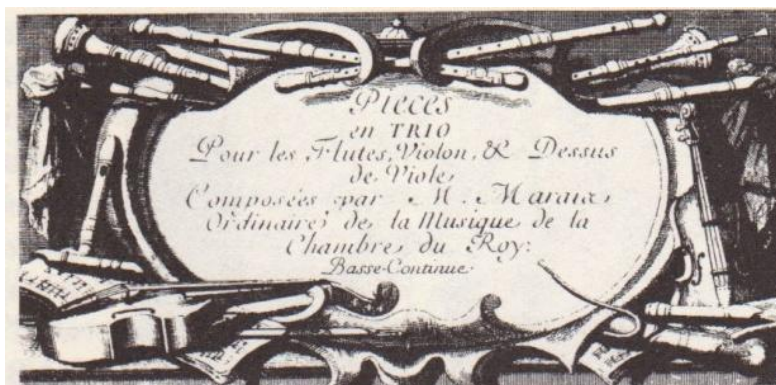 Pieces
en TRIO
Pour les Flutes, Violon, & Dessus
de Viole,
Composées par M. Marais,
Ordinaire de la Musique de la
Chambre du Roy:
Basse-Continue